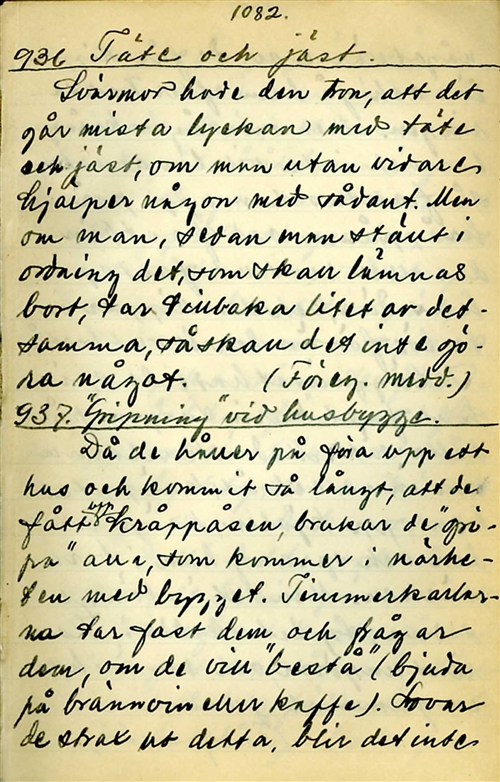 1082.
936 Täte och jäst.
Svärmor hade den tron, att det
går mista lyckan med täte
och jäst, om man utan vidare
hjälper någon med sådant. Men
om man, sedan man ställt i
ordning det, som skall lämnas
bort, tar tillbaka litet av det-
samma, så skall det inte gö-
ra något. (Föreg. medd.)
937. "Gripning" vid husbygge.
Då de håller på föra upp ett
hus och kommit så långt, att de
fått upp kråppåsen, brukar de "gri-
pa" alla, som kommer i närhe-
ten med bygget. Timmerkarlar-
na tar fast dem och frågar
dem, om de vill "bestå" (bjuda
på brännvin eller kaffe). Lovar
de strax ut detta, blir det inte